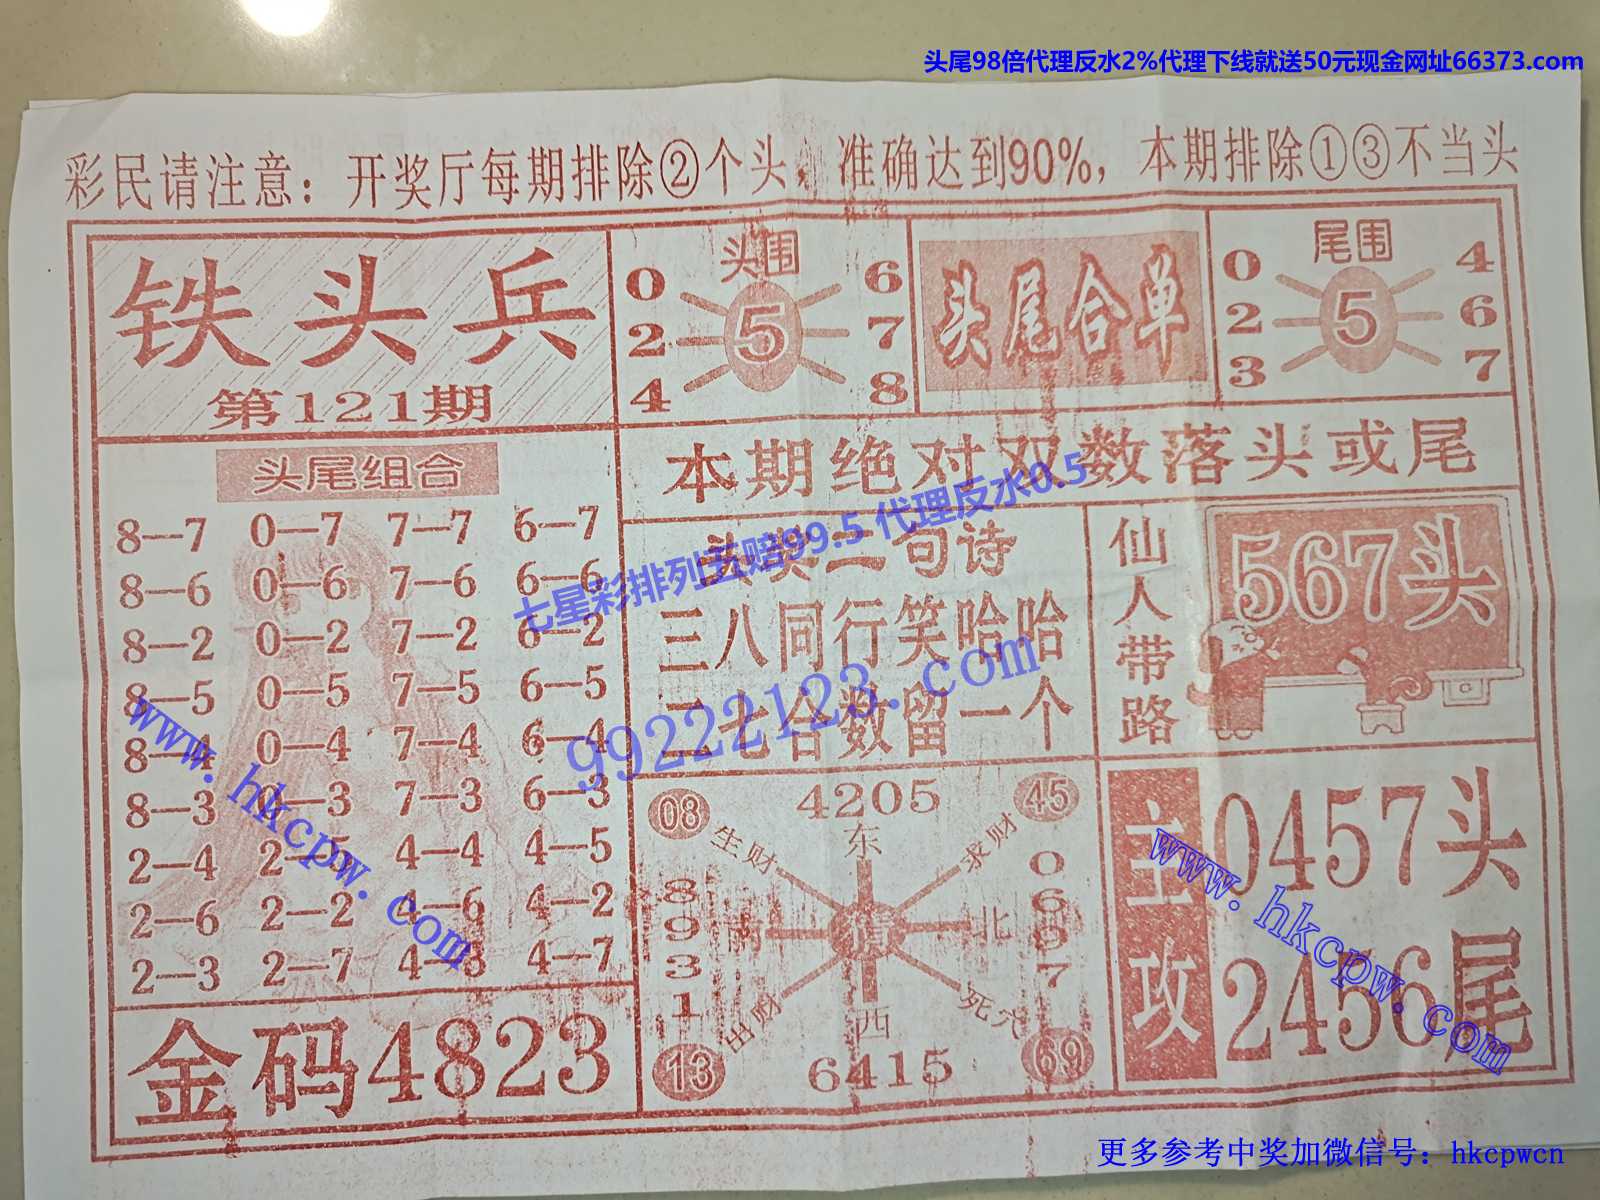 头尾98倍代理反水2%代理下线就送50元现金网址66373.com
彩民请注意：开奖厅每期排除②个头，准确达到90%，本期排除①③不当头
铁头兵
第121期
头围
0 6
2 5 7
4 8
头尾合单
尾围
0 4
2 5 6
3 7
本期绝对双数落头或尾
头尾组合
8—7 0—7 7—7 6—7
8—6 0—6 7—6 6—6
8—2 0—2 7—2 6—2
8—5 0—5 7—5 6—5
8—4 0—4 7—4 6—4
8—3 0—3 7—3 6—3
2—4 2—5 4—4 4—5
2—6 2—2 4—6 4—2
2—3 2—7 4—3 4—7
金码4823
头奖二句诗
三八同行笑哈哈
三七合数留一个
仙人带路
567头
08 4205 45
生财 东 求财
8931 南 北
出财 西 死穴
13 6415 69
主攻
0457头
2456尾
七星彩排列五赔99.5 代理反水0.5
99222123.com
www.hkcpw.com
www.hkcpw.com
更多参考中奖加微信号：hkcpwcn